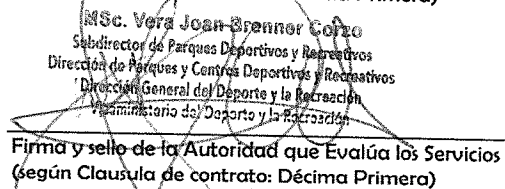 Primera)
MSc. Vera Joan Brenner Corzo
Subdirector de Parques Deportivos y Recreativos
Dirección de Parques y Centros Deportivos y Recreativos
Dirección General del Deporte y la Recreación
Viceministerio del Deporte y la Recreación
Firma y sello de la Autoridad que Evalúa los Servicios
(según Clausula de contrato: Décima Primera)